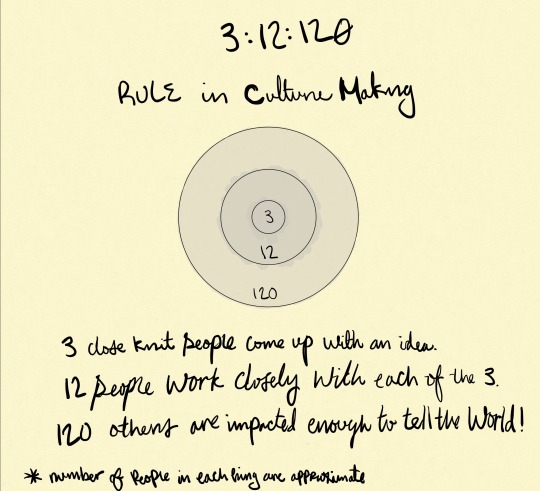 3:12:120
RULE in Culture Making
3
12
120
3 close knit people come up with an idea.
12 people work closely with each of the 3.
120 others are impacted enough to tell the World!
* number of people in each ring are approximate